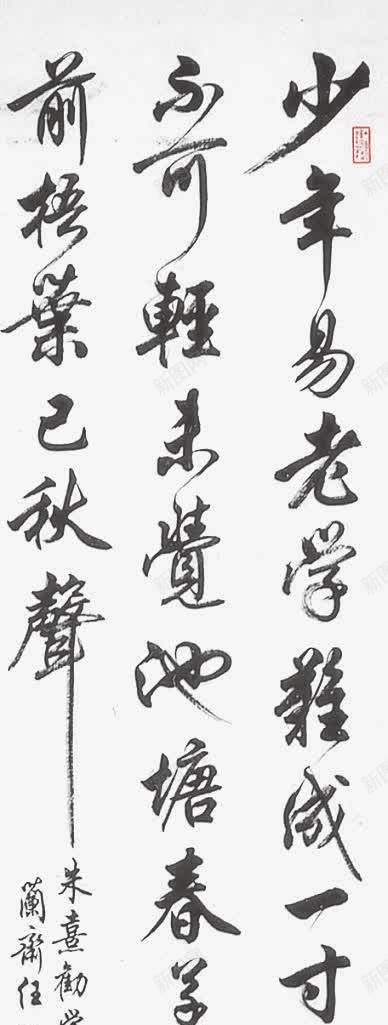 少年易老学難成一寸
不可輕未覺池塘春草
前梧葉已秋聲
朱熹勸学
蘭齋任